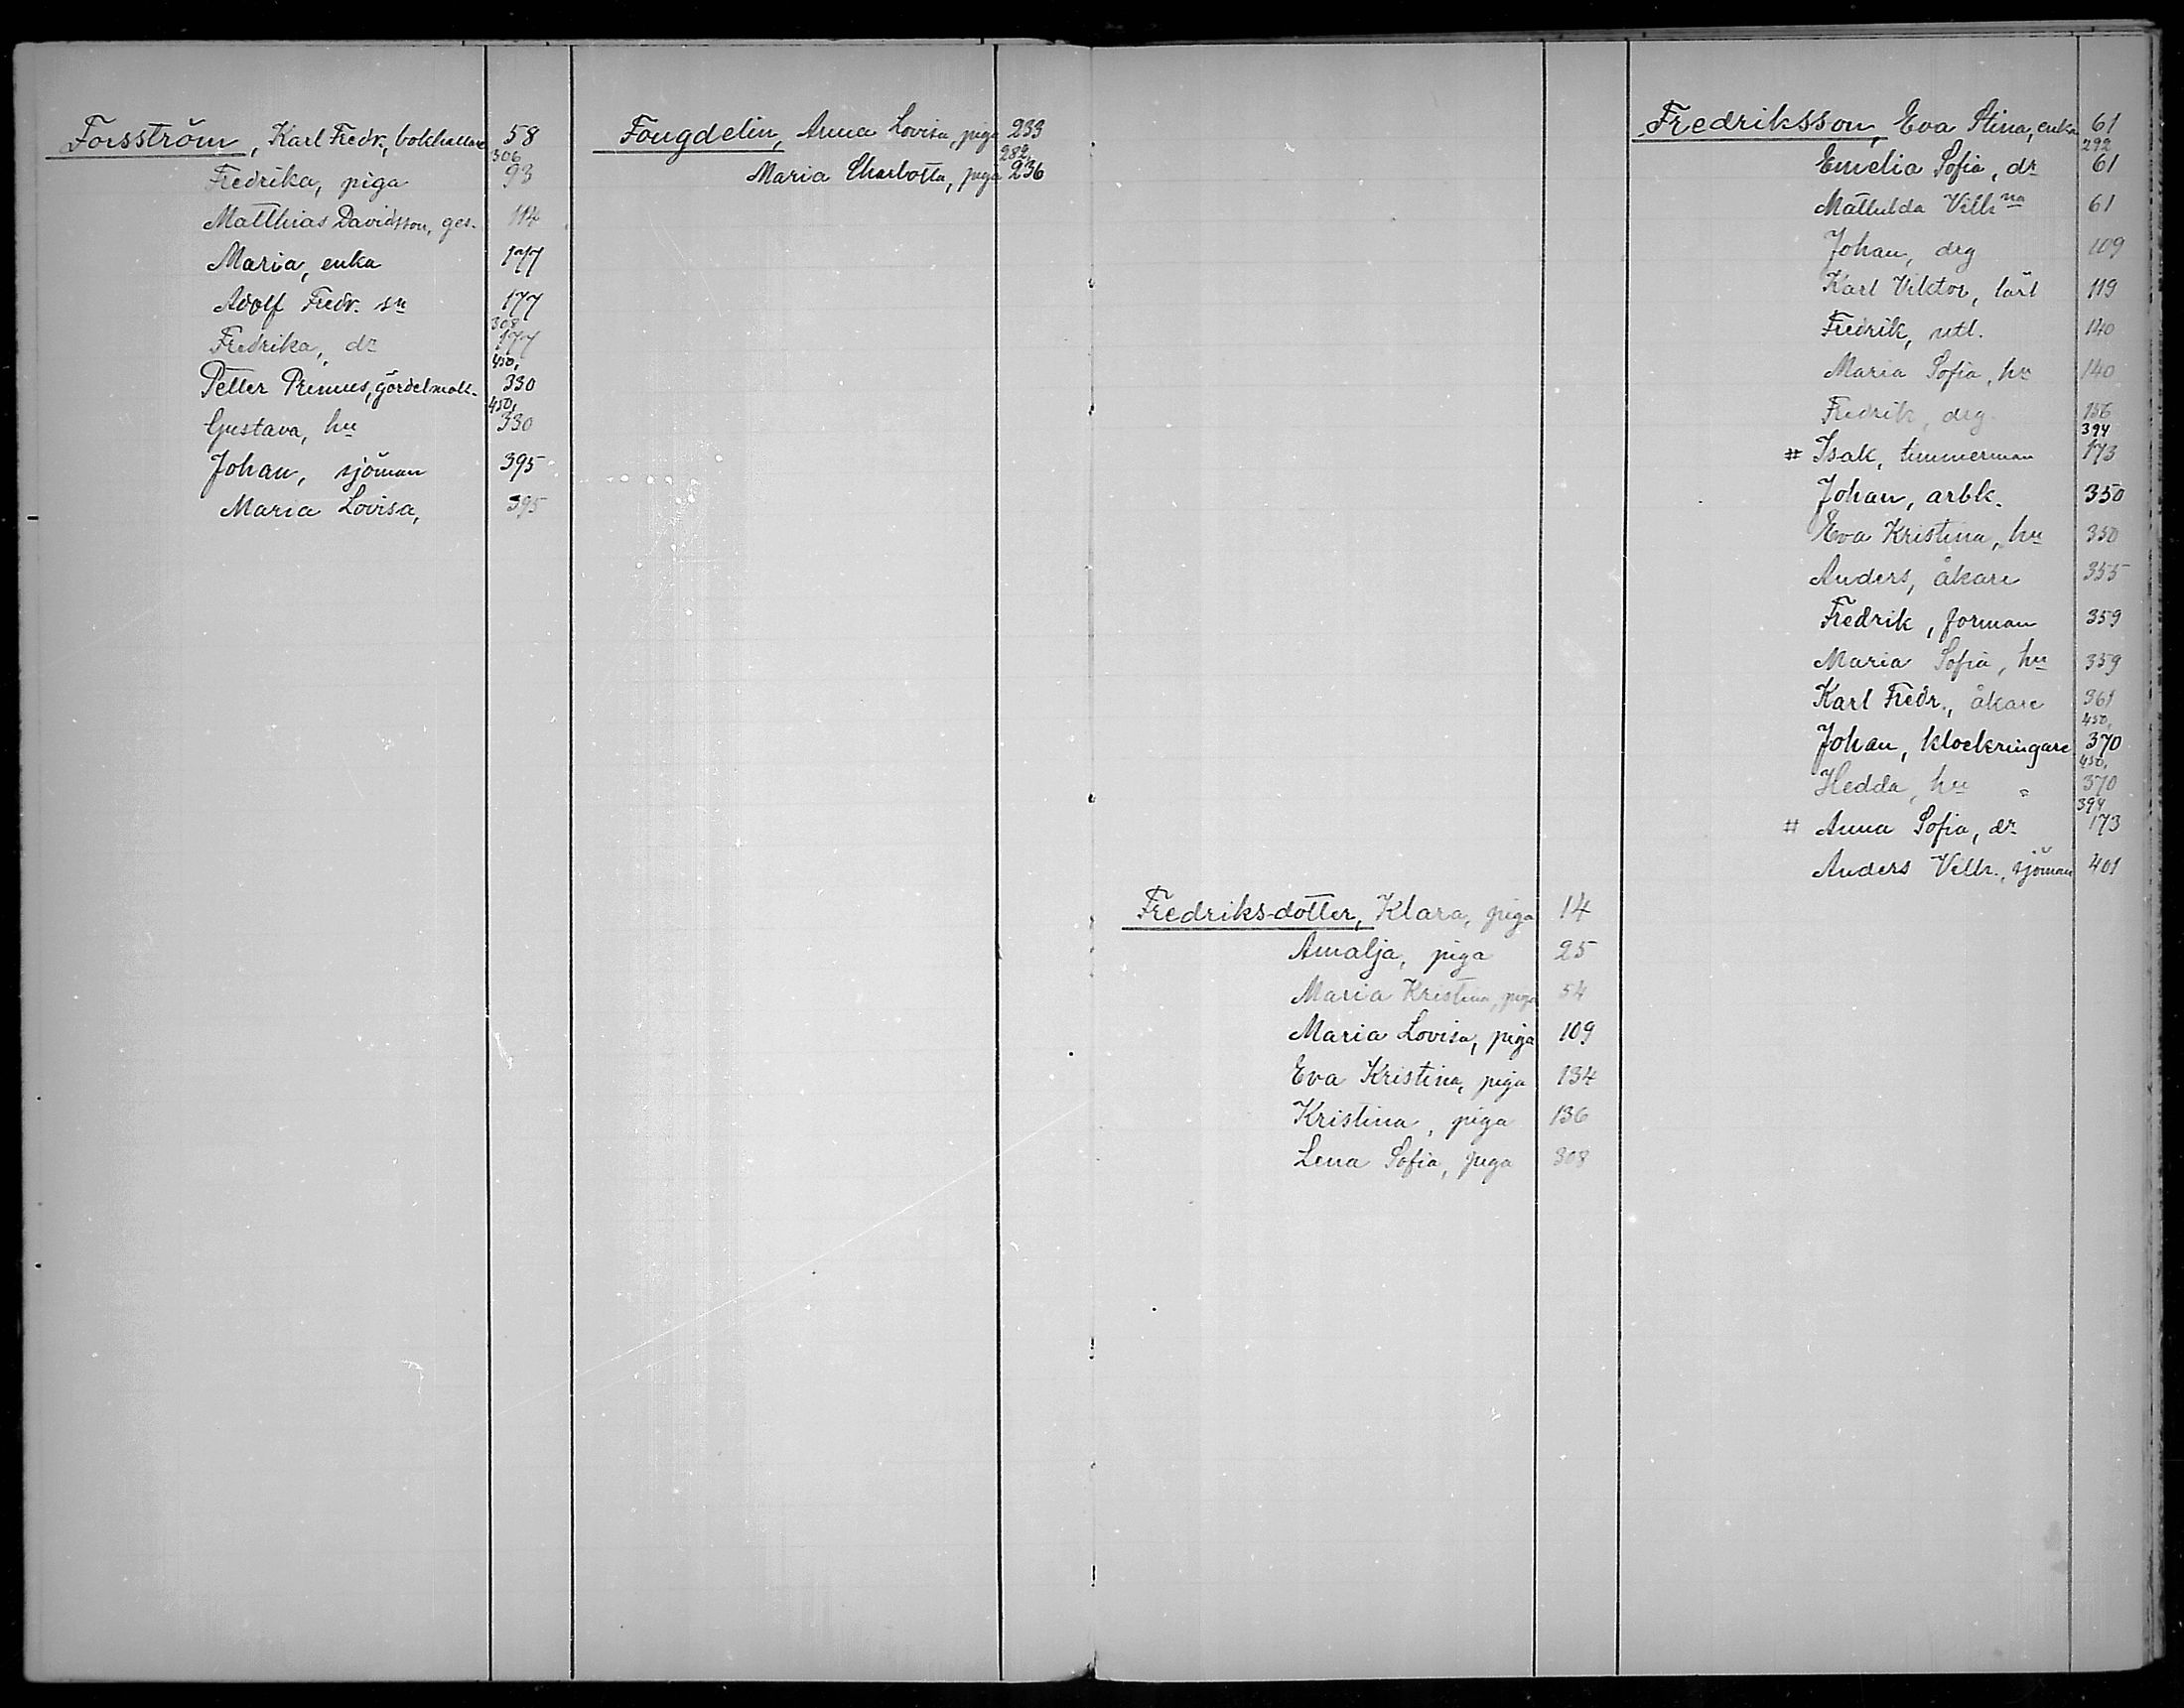 Forsström, Karl Fredr., bokhållare 58
306
Fredrika, piga 93
Matthias Davidsson, ges. 114
Maria, enka 177
Adolf Fredr. sn 177
308
Fredrika, dr 177
450,
Petter Primus, gördelmak. 330
450,
Gustava, hu 330
Johan, sjöman 395
Maria Lovisa, 395
Fougdelin, Anna Lovisa, piga 233
282,
Maria Charlotta, piga 236
Fredriks-dotter, Klara, piga 14
Amalja, piga 25
Maria Kristina, piga 54
Maria Lovisa, piga 109
Eva Kristina, piga 134
Kristina, piga 136
Lena Sofia, piga 308
Fredriksson, Eva Stina, enka 61
292
Emelia Sofia, dr 61
Mathilda Vilhna 61
Johan, drg 109
Karl Viktor, lärl 119
Fredrik, utl. 140
Maria Sofia, hu 140
Fredrik, drg. 156
394
# Isak, timmerman 173
Johan, arbk. 350
Eva Kristina, hu 350
Anders, åkare 355
Fredrik, forman 359
Maria Sofia, hu 359
Karl Fredr., åkare 361
450,
Johan, klockringare 370
450,
Hedda, hu " 370
394
# Anna Sofia, dr 173
Anders Vilh., sjöman 401